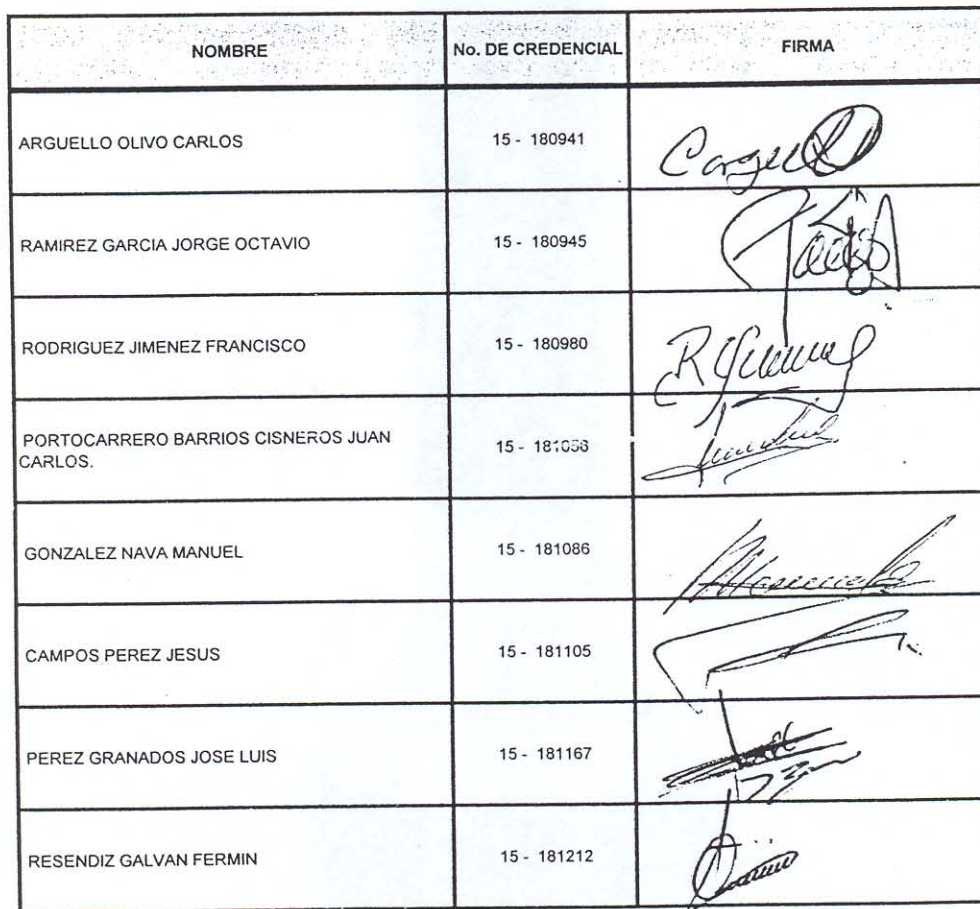 NOMBRE No. DE CREDENCIAL FIRMA
ARGUELLO OLIVO CARLOS 15 - 180941
RAMIREZ GARCIA JORGE OCTAVIO 15 - 180945
RODRIGUEZ JIMENEZ FRANCISCO 15 - 180980
PORTOCARRERO BARRIOS CISNEROS JUAN 15 - 181058
CARLOS.
GONZALEZ NAVA MANUEL 15 - 181086
CAMPOS PEREZ JESUS 15 - 181105
PEREZ GRANADOS JOSE LUIS 15 - 181167
RESENDIZ GALVAN FERMIN 15 - 181212